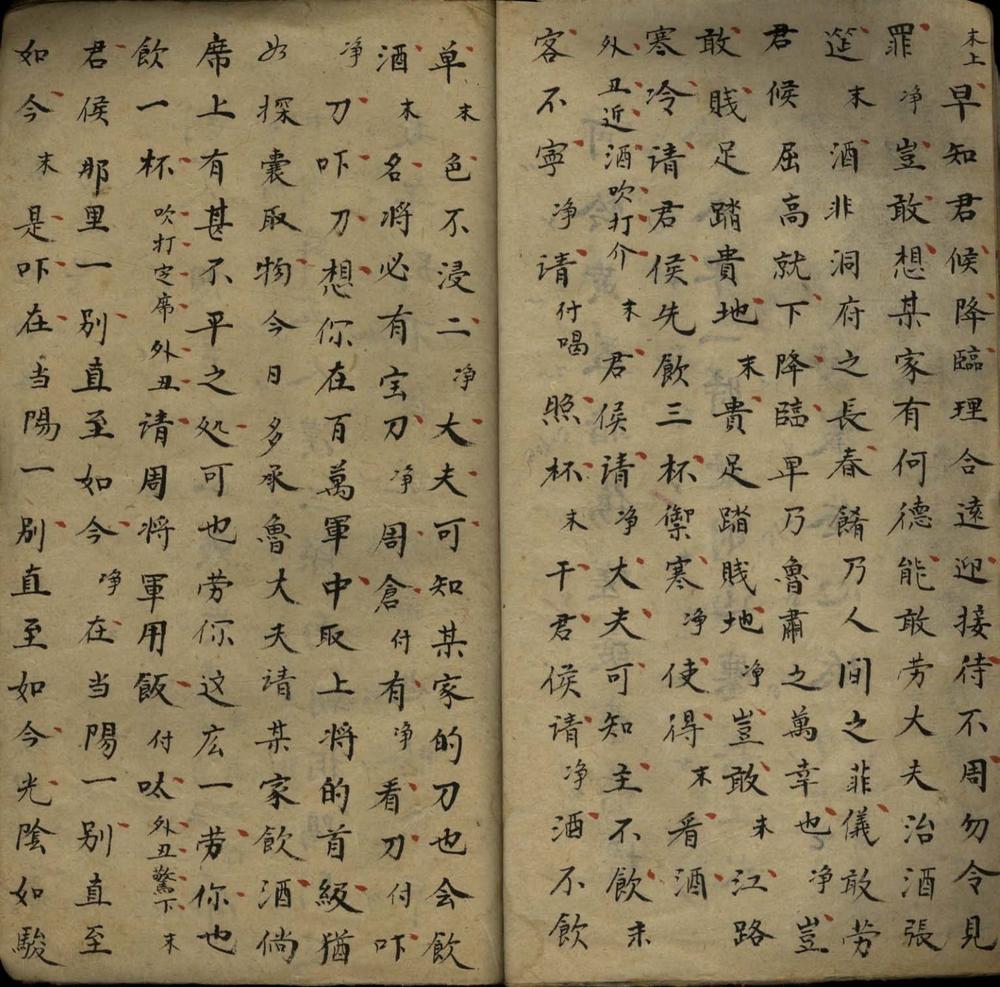 末上早知君候降臨理合遠迎接待不周勿令見
罪净豈敢想某家有何德能敢劳大夫治酒張
筵末酒非洞府之長春餚乃人間之菲儀敢劳
君候屈高就下降臨早乃魯肅之萬幸也净豈
敢賤足踏貴地末貴足踏賎地净豈敢末江路
寒冷请君侯先飲三杯禦寒净使得末看酒
外丑近酒吹打介末君侯请净大夫可知主不飲末
客不寧净请付喝照杯末干君侯请净酒不飲
单末色不浸二净大夫可知某家的刀也会飲
酒末名將必有宝刀净周倉付有净看刀付吓
净刀吓刀想你在百萬軍中取上將的首級猶
如探囊取物今日多承魯大夫请某家飲酒倘
席上有甚不平之処可也劳你这広一劳你也
飲一杯吹打定席外丑请周將軍用飯付呔外丑驚下末
君侯那里一别直至如今净在当陽一别直至
如今末是吓在当陽一别直至如今光陰如駿